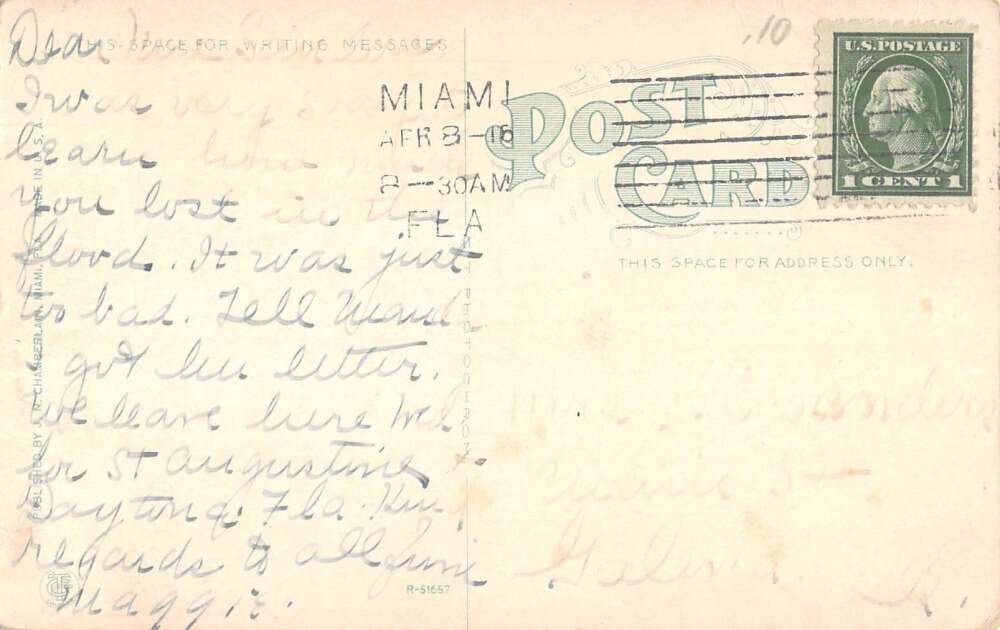 THIS SPACE FOR WRITING MESSAGES
Dear
I was very
learn how
you lost in the
flood. It was just
too bad. Tell Maud
I got her letter.
We leave here Wed
for St Augustine
Daytona Fla. Kin
regards to all from
Maggie.
PUBLISHED BY J. N. CHAMBERLAIN, MIAMI, FLA. MADE IN U. S. A.
MIAMI
APR 8 -16
8 -30AM
FLA
.10
POST
CARD
U.S. POSTAGE
1 CENT 1
THIS SPACE FOR ADDRESS ONLY.
Main St
Galena
R-51657